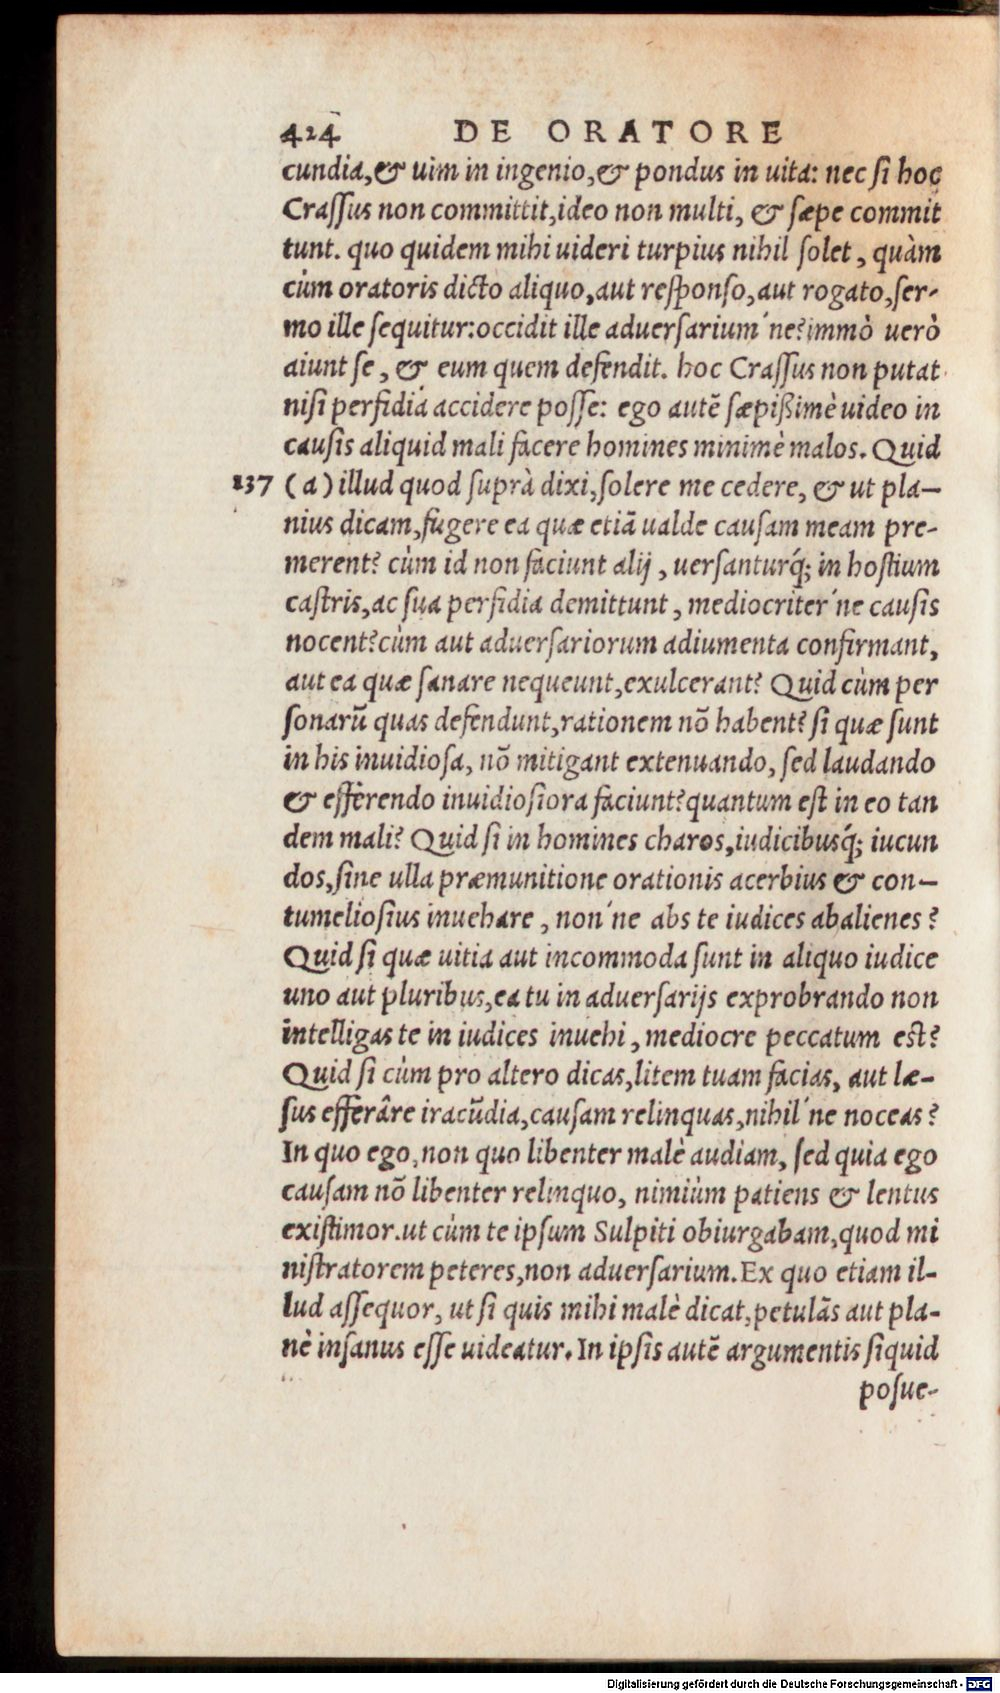 424 DE ORATORE
cundia,& uim in ingenio,& pondus in uita: nec ſi hoc
Craſſus non committit,ideo non multi, & ſæpe commit
tunt. quo quidem mihi uideri turpius nihil ſolet, quàm
cùm oratoris dicto aliquo,aut reſponſo,aut rogato,ſer-
mo ille ſequitur:occidit ille aduerſarium´ne?immò uerò
aiunt ſe, & eum quem defendit. hoc Craſſus non putat
niſi perfidia accidere poſſe: ego autē ſæpißimè uideo in
cauſis aliquid mali facere homines minimè malos. Quid
137 (a) illud quod ſuprà dixi,ſolere me cedere, & ut pla-
nius dicam,fugere ea quæ etiā ualde cauſam meam pre-
merent? cùm id non faciunt alij, uerſanturq́; in hoſtium
caſtris,ac ſua perfidia demittunt, mediocriter´ne cauſis
nocent?cùm aut aduerſariorum adiumenta confirmant,
aut ea quæ ſanare nequeunt,exulcerant? Quid cùm per
ſonarū quas defendunt,rationem nō habent? ſi quæ ſunt
in his inuidioſa, nō mitigant extenuando, ſed laudando
& efferendo inuidioſiora faciunt?quantum eſt in eo tan
dem mali? Quid ſi in homines charos,iudicibusq́; iucun
dos,ſine ulla præmunitione orationis acerbius & con-
tumelioſius inuehare, non´ne abs te iudices abalienes?
Quid ſi quæ uitia aut incommoda ſunt in aliquo iudice
uno aut pluribus,ea tu in aduerſarijs exprobrando non
intelligas te in iudices inuehi, mediocre peccatum eſt?
Quid ſi cùm pro altero dicas,litem tuam facias, aut læ-
ſus efferâre iracūdia,cauſam relinquas,nihil´ne noceas?
In quo ego,non quo libenter malè audiam, ſed quia ego
cauſam nō libenter relinquo, nimiùm patiens & lentus
exiſtimor.ut cùm te ipſum Sulpiti obiurgabam,quod mi
niſtratorem peteres,non aduerſarium.Ex quo etiam il-
lud aſſequor, ut ſi quis mihi malè dicat,petulās aut pla-
nè inſanus eſſe uideatur. In ipſis autē argumentis ſiquid
poſue-
Digitalisierung gefördert durch die Deutsche Forschungsgemeinschaft - DFG